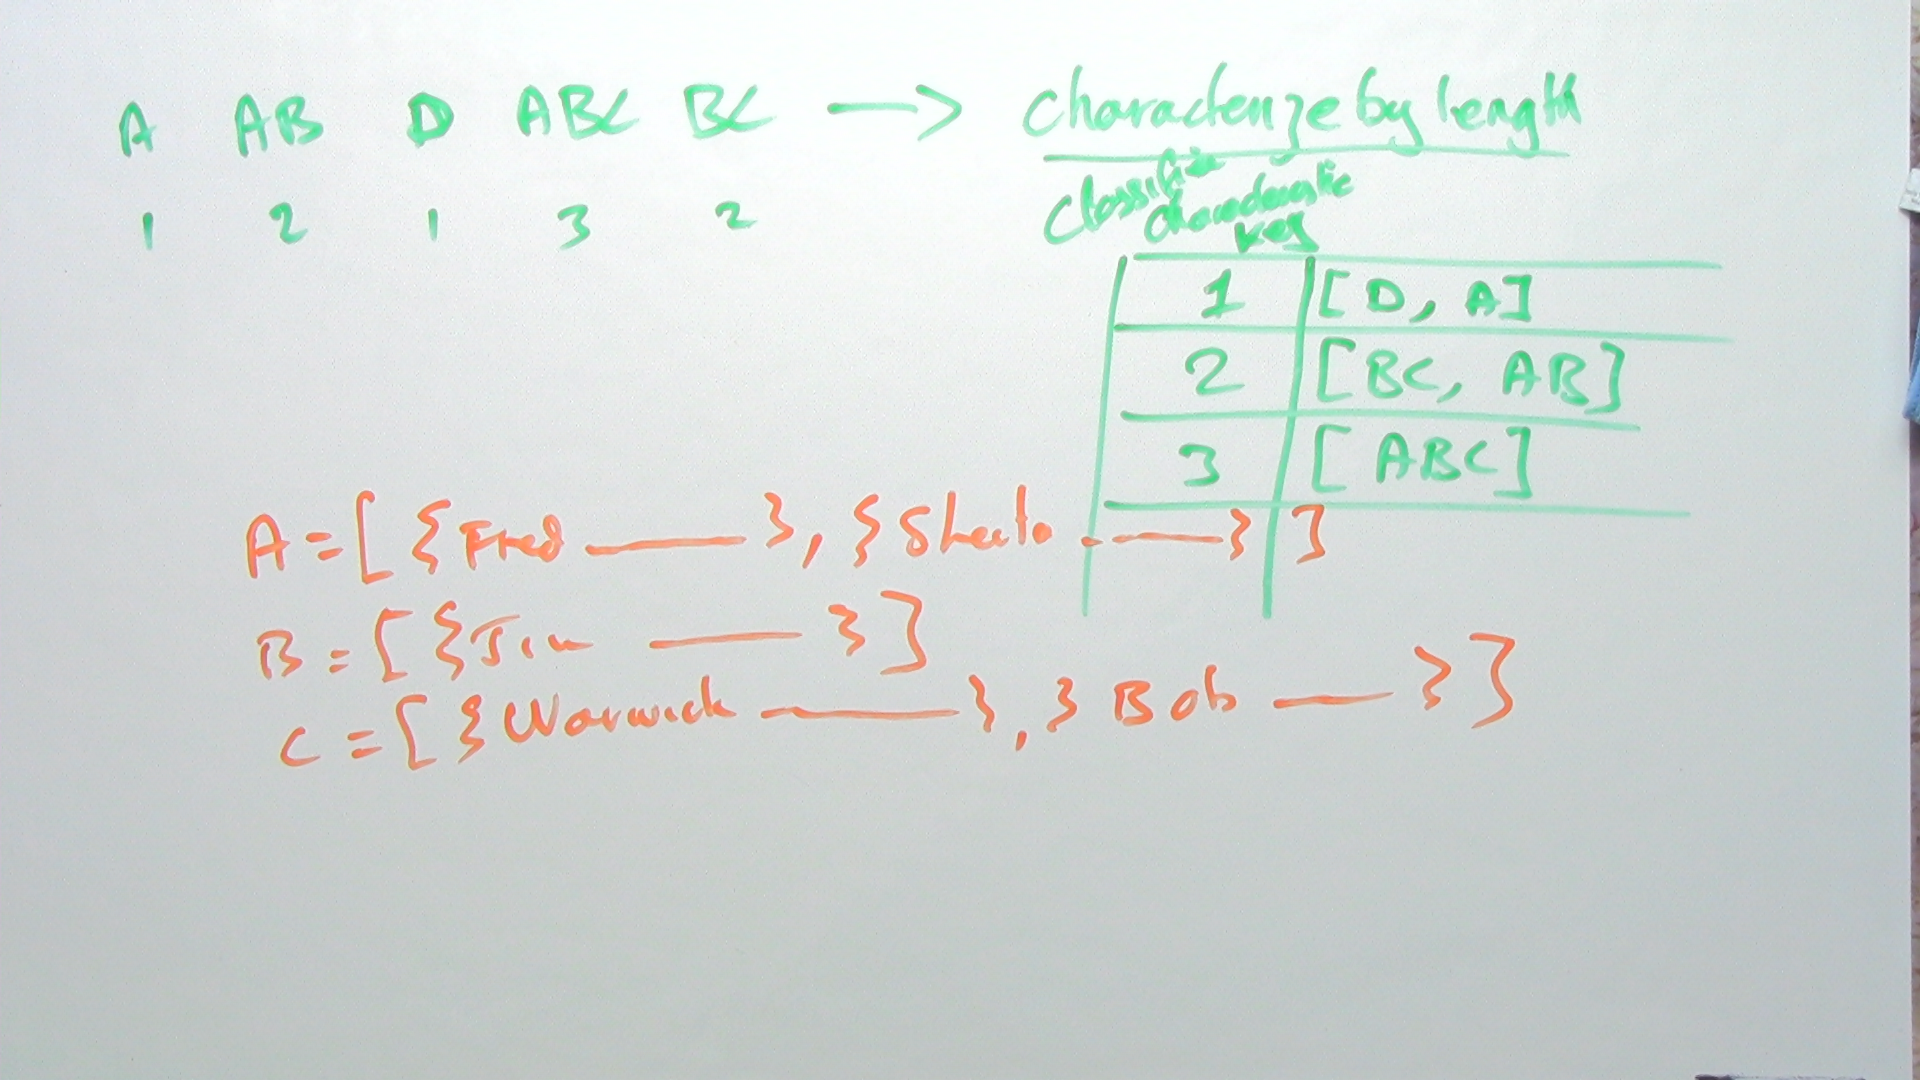 A AB D ABC BC → characterize by length
1 2 1 3 2
Classifier
characteristic
key
1 [D, A]
2 [BC, AB]
3 [ABC]
A = [ {Fred ——— }, {Sheila ——— } ]
B = [ {Jim ——— } ]
C = [ {Warwick ——— }, } Bob —— } ]